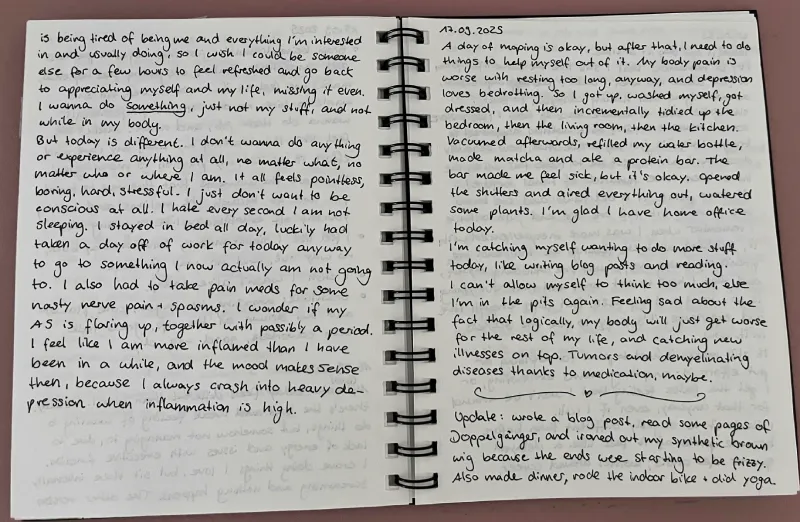 is being tired of being me and everything I'm interested
in and usually doing, so I wish I could be someone
else for a few hours to feel refreshed and go back
to appreciating myself and my life, missing it even.
I wanna do something, just not my stuff, and not
while in my body.
But today is different. I don't wanna do anything
or experience anything at all, no matter what, no
matter who or where I am. It all feels pointless,
boring, hard, stressful. I just don't want to be
conscious at all. I hate every second I am not
sleeping. I stayed in bed all day, luckily had
taken a day off of work for today anyway
to go to something I now actually am not going
to. I also had to take pain meds for some
nasty nerve pain + spasms. I wonder if my
AS is flaring up, together with possibly a period.
I feel like I am more inflamed than I have
been in a while, and the mood makes sense
then, because I always crash into heavy de-
pression when inflammation is high.
17.09.2025
A day of moping is okay, but after that, I need to do
things to help myself out of it. My body pain is
worse with resting too long, anyway, and depression
loves bedrotting. So I got up, washed myself, got
dressed, and then incrementally tidied up the
bedroom, then the living room, then the kitchen.
Vacuumed afterwards, refilled my water bottle,
made matcha and ate a protein bar. The
bar made me feel sick, but it's okay. Opened
the shutters and aired everything out, watered
some plants. I'm glad I have home office
today.
I'm catching myself wanting to do more stuff
today, like writing blog posts and reading.
I can't allow myself to think too much, else
I'm in the pits again. Feeling sad about the
fact that logically, my body will just get worse
for the rest of my life, and catching new
illnesses on top. Tumors and demyelinating
diseases thanks to medication, maybe.
Update: wrote a blog post, read some pages of
Doppelgänger, and ironed out my synthetic brown
wig because the ends were starting to be frizzy.
Also made dinner, rode the indoor bike + did yoga